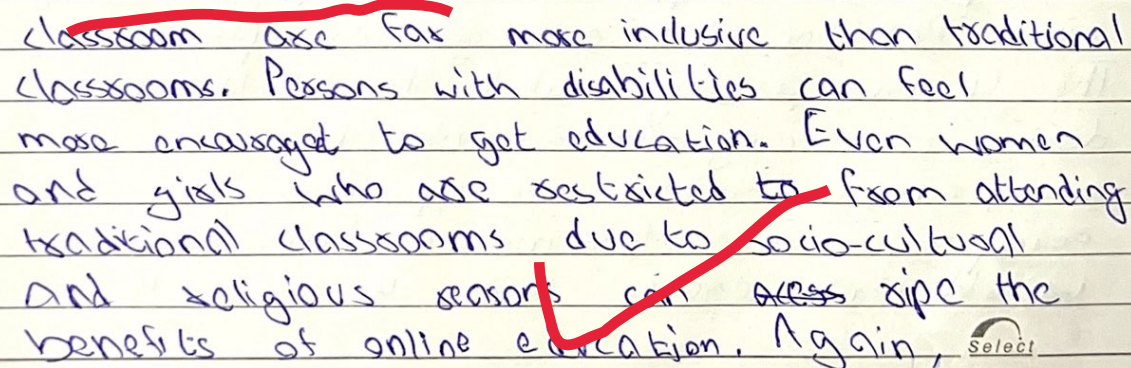 classroom are far more inclusive than traditional
classrooms. Persons with disabilities can feel
more encouraged to get education. Even women
and girls who are restricted to from attending
traditional classrooms due to socio-cultural
and religious reasons can access ripe the
benefits of online education. Again, Select